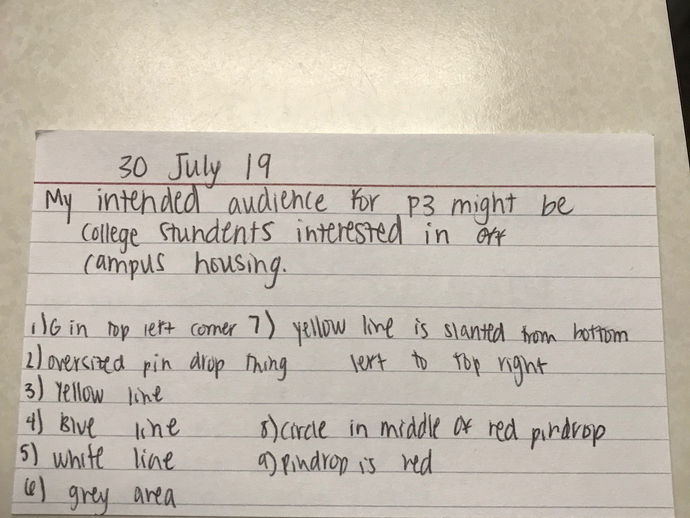 30 July 19
My intended audience for P3 might be
college stundents interested in off
campus housing.
1) G in top left corner
2) oversized pin drop thing
3) Yellow line
4) Blue line
5) white line
6) grey area
7) yellow line is slanted from bottom
left to top right
8) circle in middle of red pindrop
9) pindrop is red